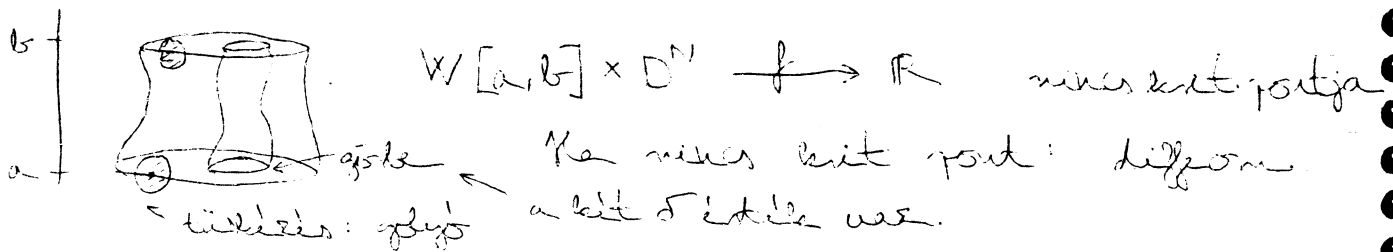 b
W[a,b] × D^N —f→ ℝ nincs krit. pontja
a gömb Ha nincs krit pont: diffeom
tükrözés: golyó a két érték